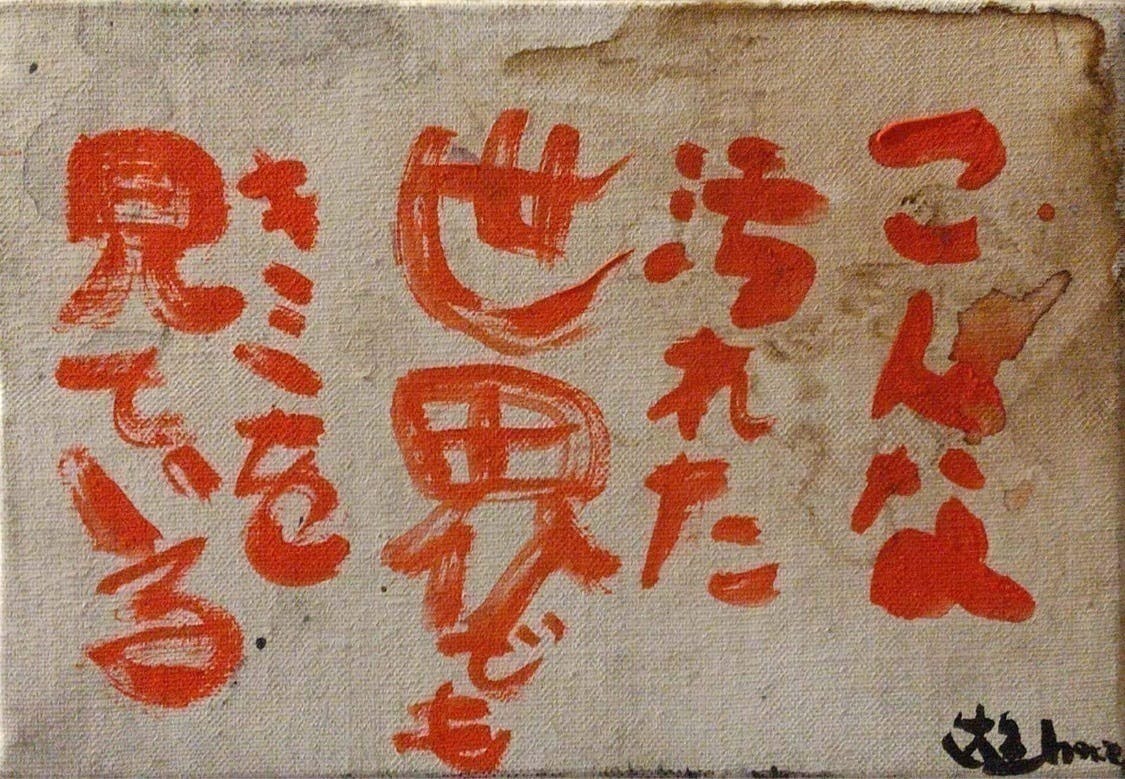 こんな
汚れた
世界でも
キミを
見ている